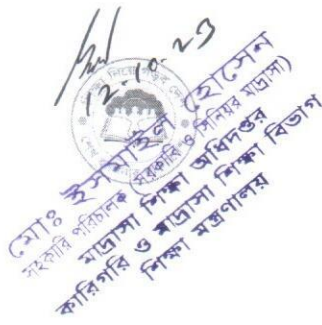 12-10-23
মোঃ ইসমাইল হোসেন
সহকারি পরিচালক (সরকারি ও সিনিয়র মাদ্রাসা)
মাদ্রাসা শিক্ষা অধিদপ্তর
কারিগরি ও মাদ্রাসা শিক্ষা বিভাগ
শিক্ষা মন্ত্রণালয়